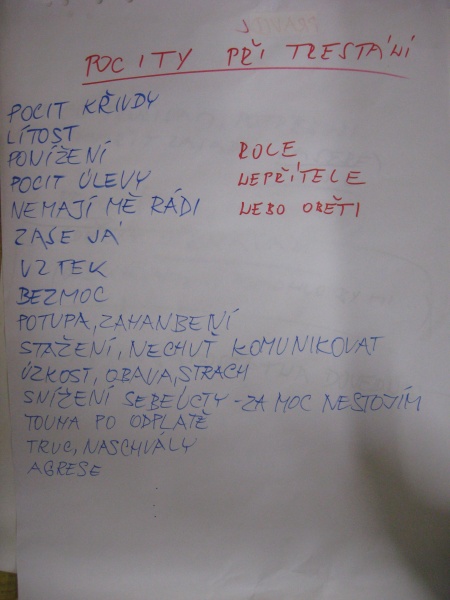 POCITY PŘI TRESTÁNÍ
POCIT KŘIVDY
LÍTOST
PONÍŽENÍ
POCIT ÚLEVY
NEMAJÍ MĚ RÁDI
ZASE JÁ
VZTEK
BEZMOC
POTUPA, ZAHANBENÍ
STAŽENÍ, NECHUŤ KOMUNIKOVAT
ÚZKOST, OBAVA, STRACH
SNÍŽENÍ SEBEÚCTY - ZA MOC NESTOJÍM
TOUHA PO ODPLATĚ
TRUC, NASCHVÁLY
AGRESE
ROLE
NEPŘÍTELE
NEBO OBĚTI